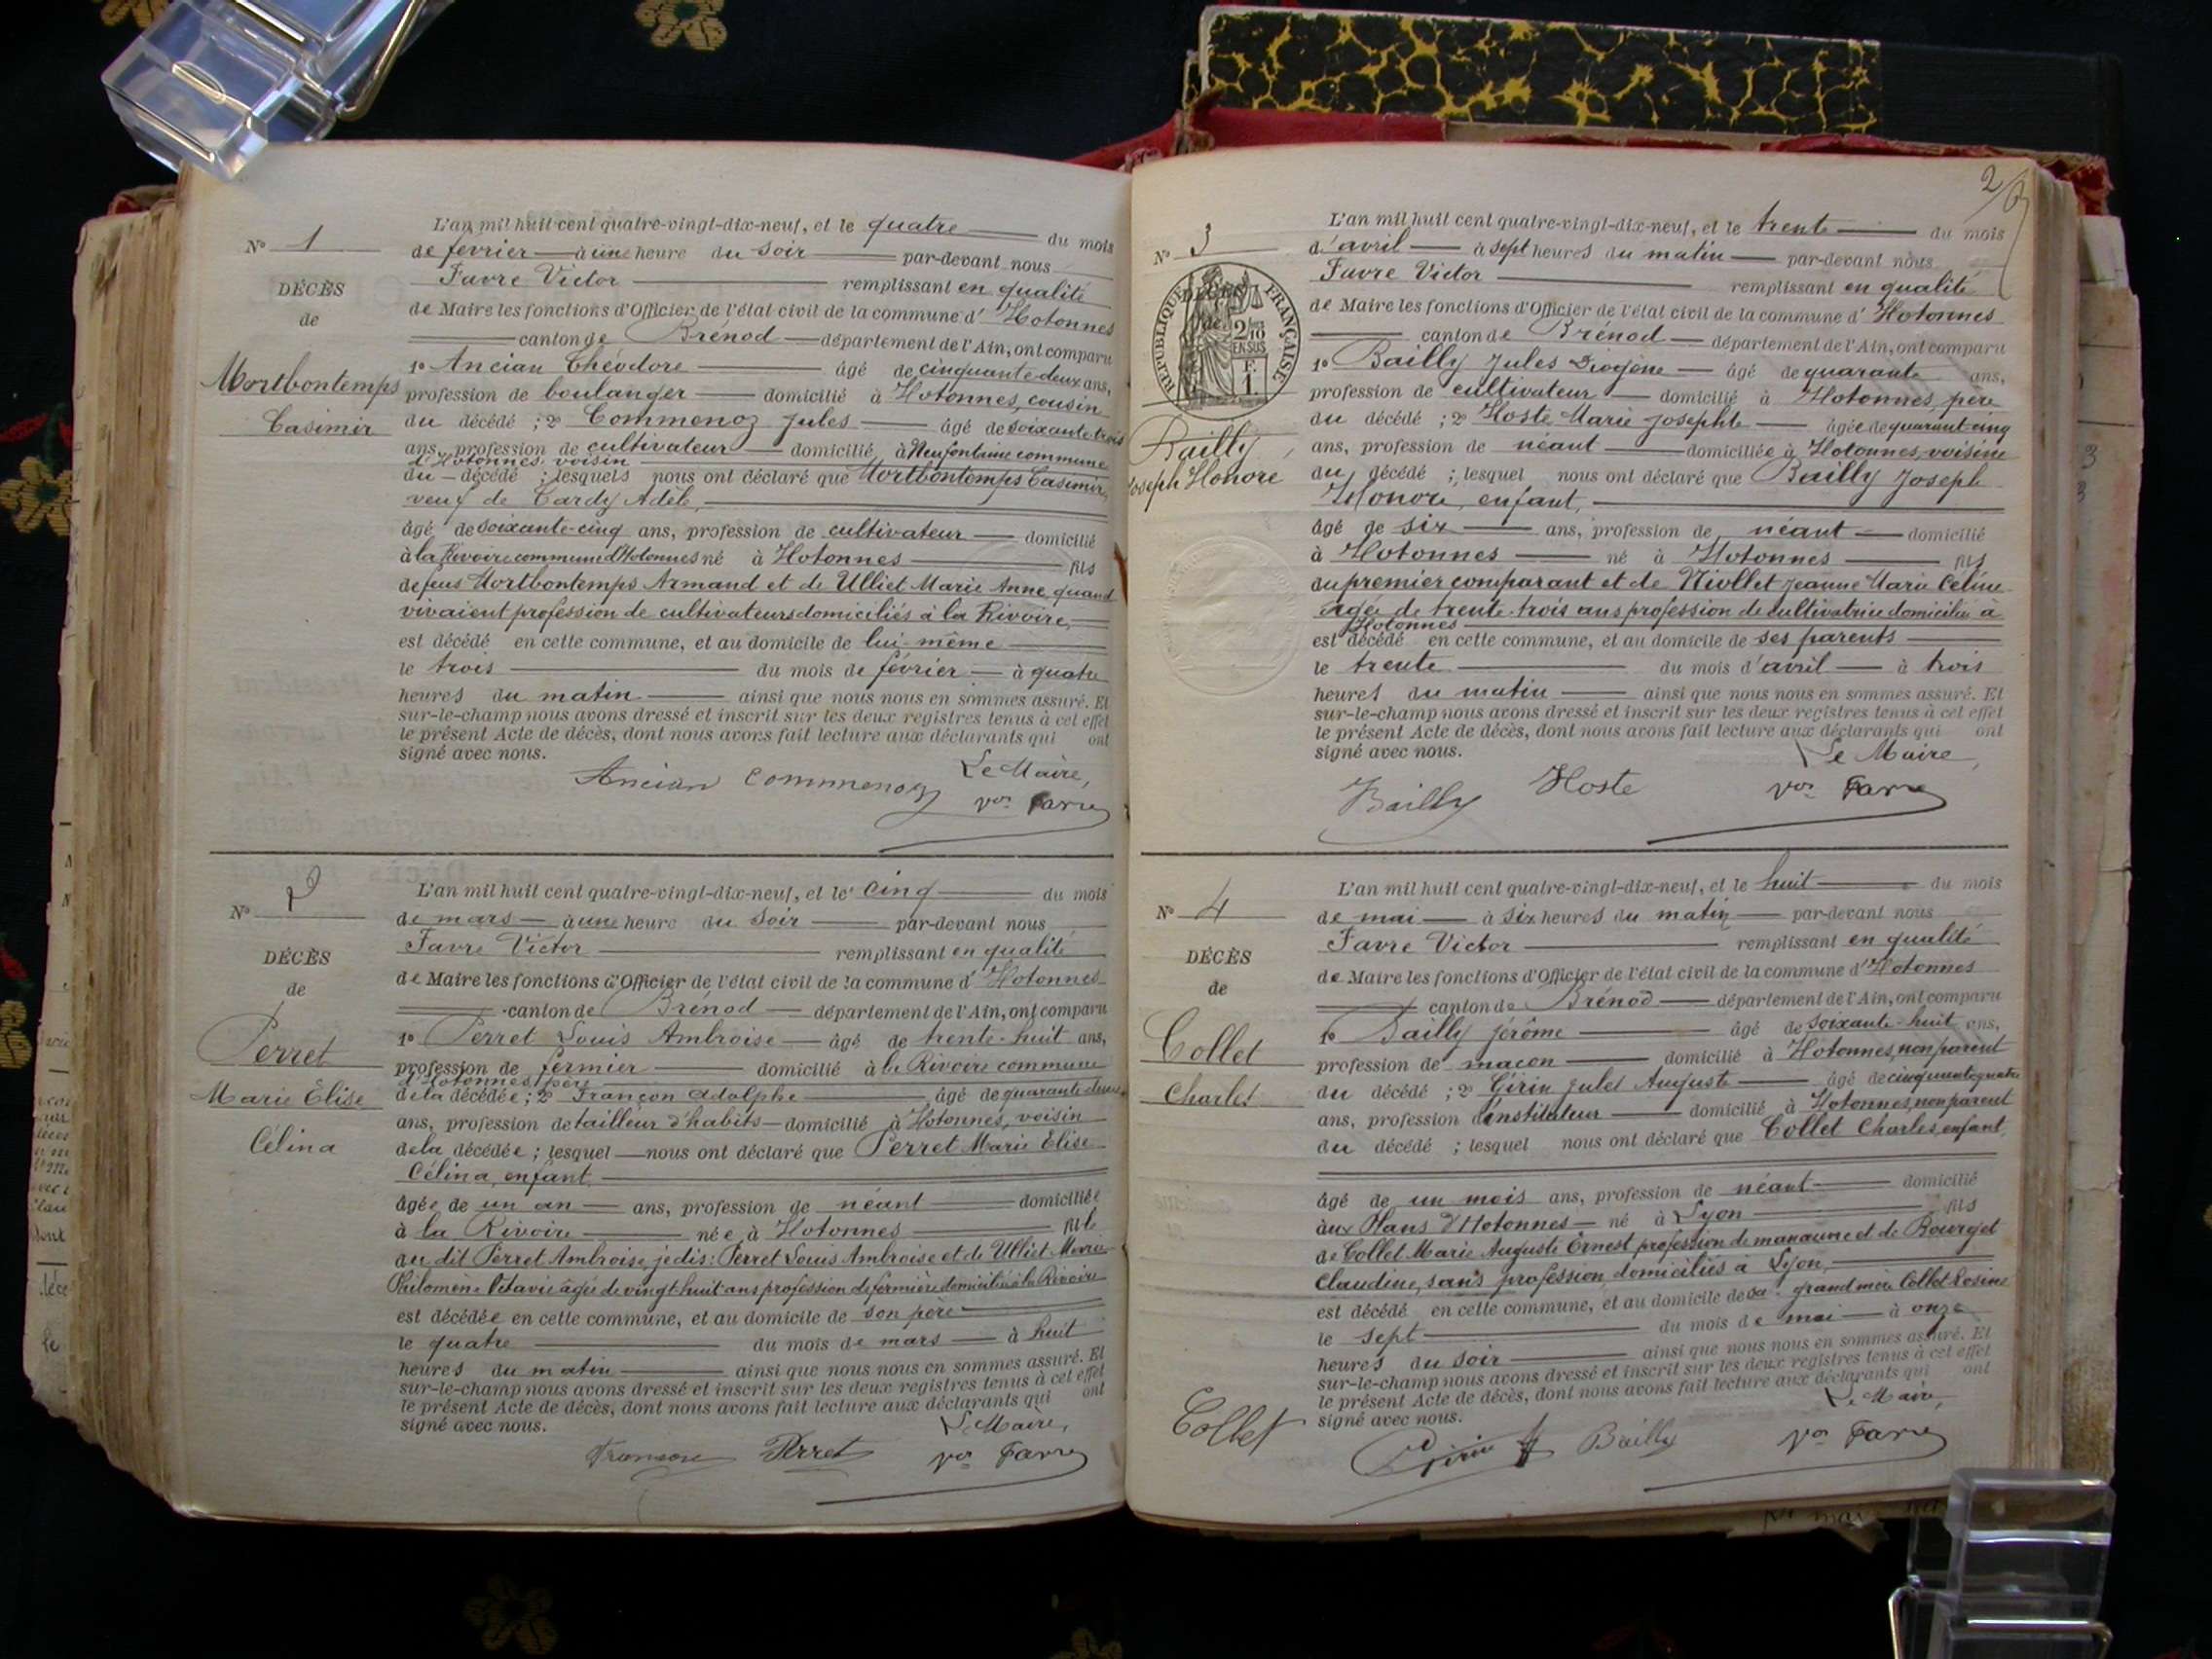 N° 1
DÉCÈS
de
Mortbontemps
Casimir
L'an mil huit cent quatre-vingt-dix-neuf, et le quatre du mois
de février à une heure du soir par-devant nous
Favre Victor remplissant en qualité
de Maire les fonctions d'Officier de l'état civil de la commune d' Hotonnes
canton de Brénod département de l'Ain, ont comparu
1° Ancian Théodore âgé de cinquante-deux ans,
profession de boulanger domicilié à Hotonnes, cousin
du décédé ; 2° Commenoz Jules âgé de soixante trois
ans, profession de cultivateur domicilié à Neufontaine commune
d'Hotonnes voisin
du décédé ; lesquels nous ont déclaré que Mortbontemps Casimir,
veuf de Cardy Adèle,
âgé de soixante-cinq ans, profession de cultivateur domicilié
à la Rivoire commune d'Hotonnes né à Hotonnes fils
de feus Mortbontemps Armand et de Ulliet Marie Anne, quand
vivaient profession de cultivateurs domiciliés à la Rivoire,
est décédé en cette commune, et au domicile de lui-même
le trois du mois de février à quatre
heures du matin ainsi que nous nous en sommes assuré. Et
sur-le-champ nous avons dressé et inscrit sur les deux registres tenus à cet effet
le présent Acte de décès, dont nous avons fait lecture aux déclarants qui ont
signé avec nous.
Le Maire,
Ancian Commenoz Vor Favre
N° 2
DÉCÈS
de
Perret
Marie Elise
Célina
L'an mil huit cent quatre-vingt-dix-neuf, et le cinq du mois
de mars à une heure du soir par-devant nous
Favre Victor remplissant en qualité
de Maire les fonctions d'Officier de l'état civil de la commune d' Hotonnes
canton de Brénod département de l'Ain, ont comparu
1° Perret Louis Ambroise âgé de trente-huit ans,
profession de fermier domicilié à la Rivoire commune
d'Hotonnes, père
de la décédée ; 2° Françon Adolphe âgé de quarante deux
ans, profession de tailleur d'habits domicilié à Hotonnes, voisin
de la décédée ; lesquel nous ont déclaré que Perret Marie Elise
Célina, enfant,
âgée de un an ans, profession de néant domiciliée
à la Rivoire née à Hotonnes fille
au dit Perret Ambroise, je dis : Perret Louis Ambroise et de Ulliet Marie
Philomène Octavie âgée de vingt-huit ans profession de fermière domiciliée à la Rivoire
est décédée en cette commune, et au domicile de son père
le quatre du mois de mars à huit
heures du matin ainsi que nous nous en sommes assuré. Et
sur-le-champ nous avons dressé et inscrit sur les deux registres tenus à cet effet
le présent Acte de décès, dont nous avons fait lecture aux déclarants qui ont
signé avec nous.
Le Maire,
Françon Perret Vor Favre
2
N° 3
RÉPUBLIQUE FRANÇAISE
DÉCÈS
de
2/10
EN SUS
F.
1.
Bailly
Joseph Honore
L'an mil huit cent quatre-vingt-dix-neuf, et le trente du mois
d'avril à sept heures du matin par-devant nous
Favre Victor remplissant en qualité
de Maire les fonctions d'Officier de l'état civil de la commune d' Hotonnes
canton de Brénod département de l'Ain, ont comparu
1° Bailly Jules Diogène âgé de quarante ans,
profession de cultivateur domicilié à Hotonnes, père
du décédé ; 2° Hoste Marie Josephte âgée de quarant-cinq
ans, profession de néant domiciliée à Hotonnes, voisine
du décédé ; lesquel nous ont déclaré que Bailly Joseph
Honore, enfant,
âgé de six ans, profession de néant domicilié
à Hotonnes né à Hotonnes fils
du premier comparant et de Niollet Jeanne Marie Céline
agée de trente-trois ans profession de cultivatrice domiciliée à
Hotonnes
est décédé en cette commune, et au domicile de ses parents
le trente du mois d'avril à trois
heures du matin ainsi que nous nous en sommes assuré. Et
sur-le-champ nous avons dressé et inscrit sur les deux registres tenus à cet effet
le présent Acte de décès, dont nous avons fait lecture aux déclarants qui ont
signé avec nous.
Le Maire,
Bailly Hoste Vor Favre
N° 4
DÉCÈS
de
Collet
Charles
L'an mil huit cent quatre-vingt-dix-neuf, et le huit du mois
de mai à six heures du matin par-devant nous
Favre Victor remplissant en qualité
de Maire les fonctions d'Officier de l'état civil de la commune d' Hotonnes
canton de Brénod département de l'Ain, ont comparu
1° Bailly Jérôme âgé de soixante-huit ans,
profession de maçon domicilié à Hotonnes, non parent
du décédé ; 2° Girin Jules Auguste âgé de cinquante quatre
ans, profession d'instituteur domicilié à Hotonnes, non parent
du décédé ; lesquel nous ont déclaré que Collet Charles, enfant,
âgé de un mois ans, profession de néant domicilié
aux Plans d'Hotonnes né à Lyon fils
de Collet Marie Auguste Ernest profession de manœuvre et de Bourget
Claudine, sans profession, domiciliés à Lyon,
est décédé en cette commune, et au domicile de sa grand mère Collet Rosine
le sept du mois de mai à onze
heures du soir ainsi que nous nous en sommes assuré. Et
sur-le-champ nous avons dressé et inscrit sur les deux registres tenus à cet effet
le présent Acte de décès, dont nous avons fait lecture aux déclarants qui ont
signé avec nous.
Le Maire,
Collet Girin Bailly Vor Favre